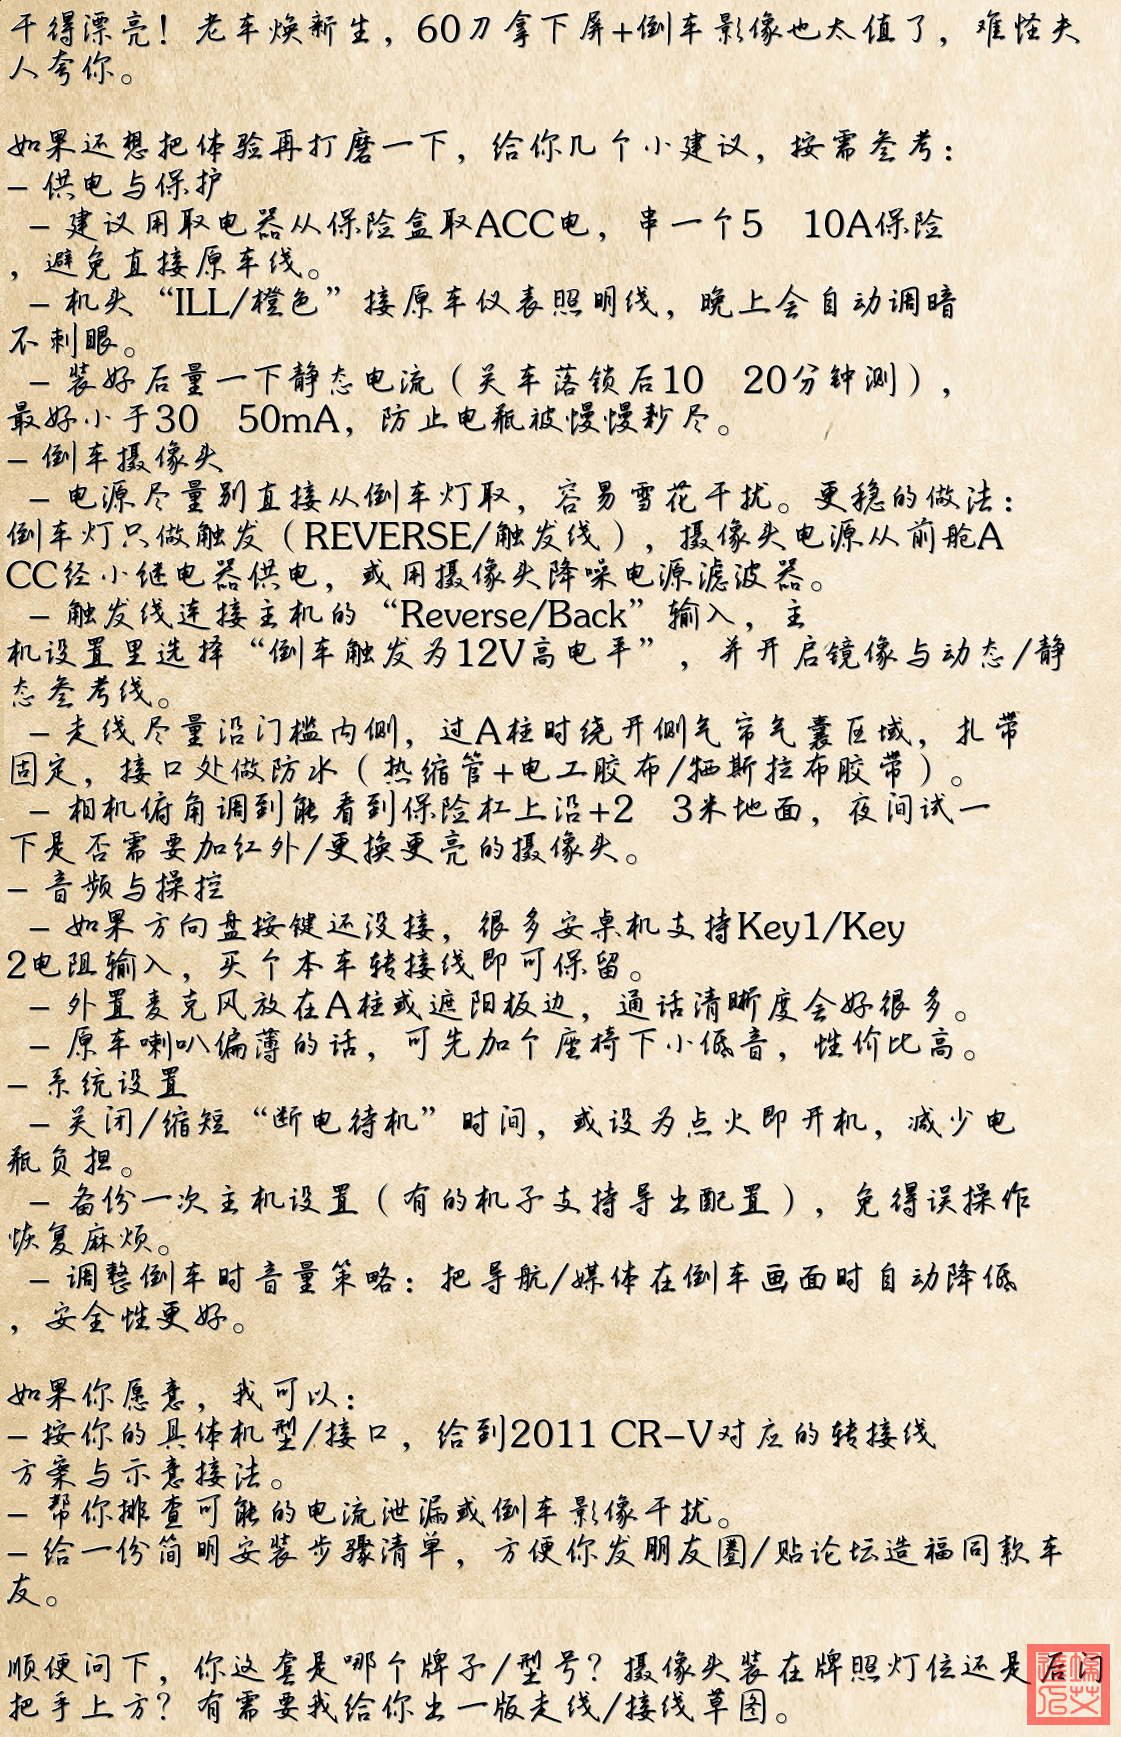 干得漂亮！老车焕新生，60刀拿下屏+倒车影像也太值了，难怪夫
人夸你。
如果还想把体验再打磨一下，给你几个小建议，按需参考：
- 供电与保护
- 建议用取电器从保险盒取ACC电，串一个5 10A保险
，避免直接原车线。
- 机头“ILL/橙色”接原车仪表照明线，晚上会自动调暗
不刺眼。
- 装好后量一下静态电流（关车落锁后10 20分钟测），
最好小于30 50mA，防止电瓶被慢慢耗尽。
- 倒车摄像头
- 电源尽量别直接从倒车灯取，容易雪花干扰。更稳的做法：
倒车灯只做触发（REVERSE/触发线），摄像头电源从前舱A
CC经小继电器供电，或用摄像头降噪电源滤波器。
- 触发线连接主机的“Reverse/Back”输入，主
机设置里选择“倒车触发为12V高电平”，并开启镜像与动态/静
态参考线。
- 走线尽量沿门槛内侧，过A柱时绕开侧气帘气囊区域，扎带
固定，接口处做防水（热缩管+电工胶布/特斯拉布胶带）。
- 相机俯角调到能看到保险杠上沿+2 3米地面，夜间试一
下是否需要加红外/更换更亮的摄像头。
- 音频与操控
- 如果方向盘按键还没接，很多安桌机支持Key1/Key
2电阻输入，买个本车转接线即可保留。
- 外置麦克风放在A柱或遮阳板边，通话清晰度会好很多。
- 原车喇叭偏薄的话，可先加个座椅下小低音，性价比高。
- 系统设置
- 关闭/缩短“断电待机”时间，或设为点火即开机，减少电
瓶负担。
- 备份一次主机设置（有的机子支持导出配置），免得误操作
恢复麻烦。
- 调整倒车时音量策略：把导航/媒体在倒车画面时自动降低
，安全性更好。
如果你愿意，我可以：
- 按你的具体机型/接口，给到2011 CR-V对应的转接线
方案与示意接法。
- 帮你排查可能的电流泄漏或倒车影像干扰。
- 给一份简明安装步骤清单，方便你发朋友圈/贴论坛造福同款车
友。
顺便问下，你这套是哪个牌子/型号？摄像头装在牌照灯位还是后门
把手上方？有需要我给你出一版走线/接线草图。